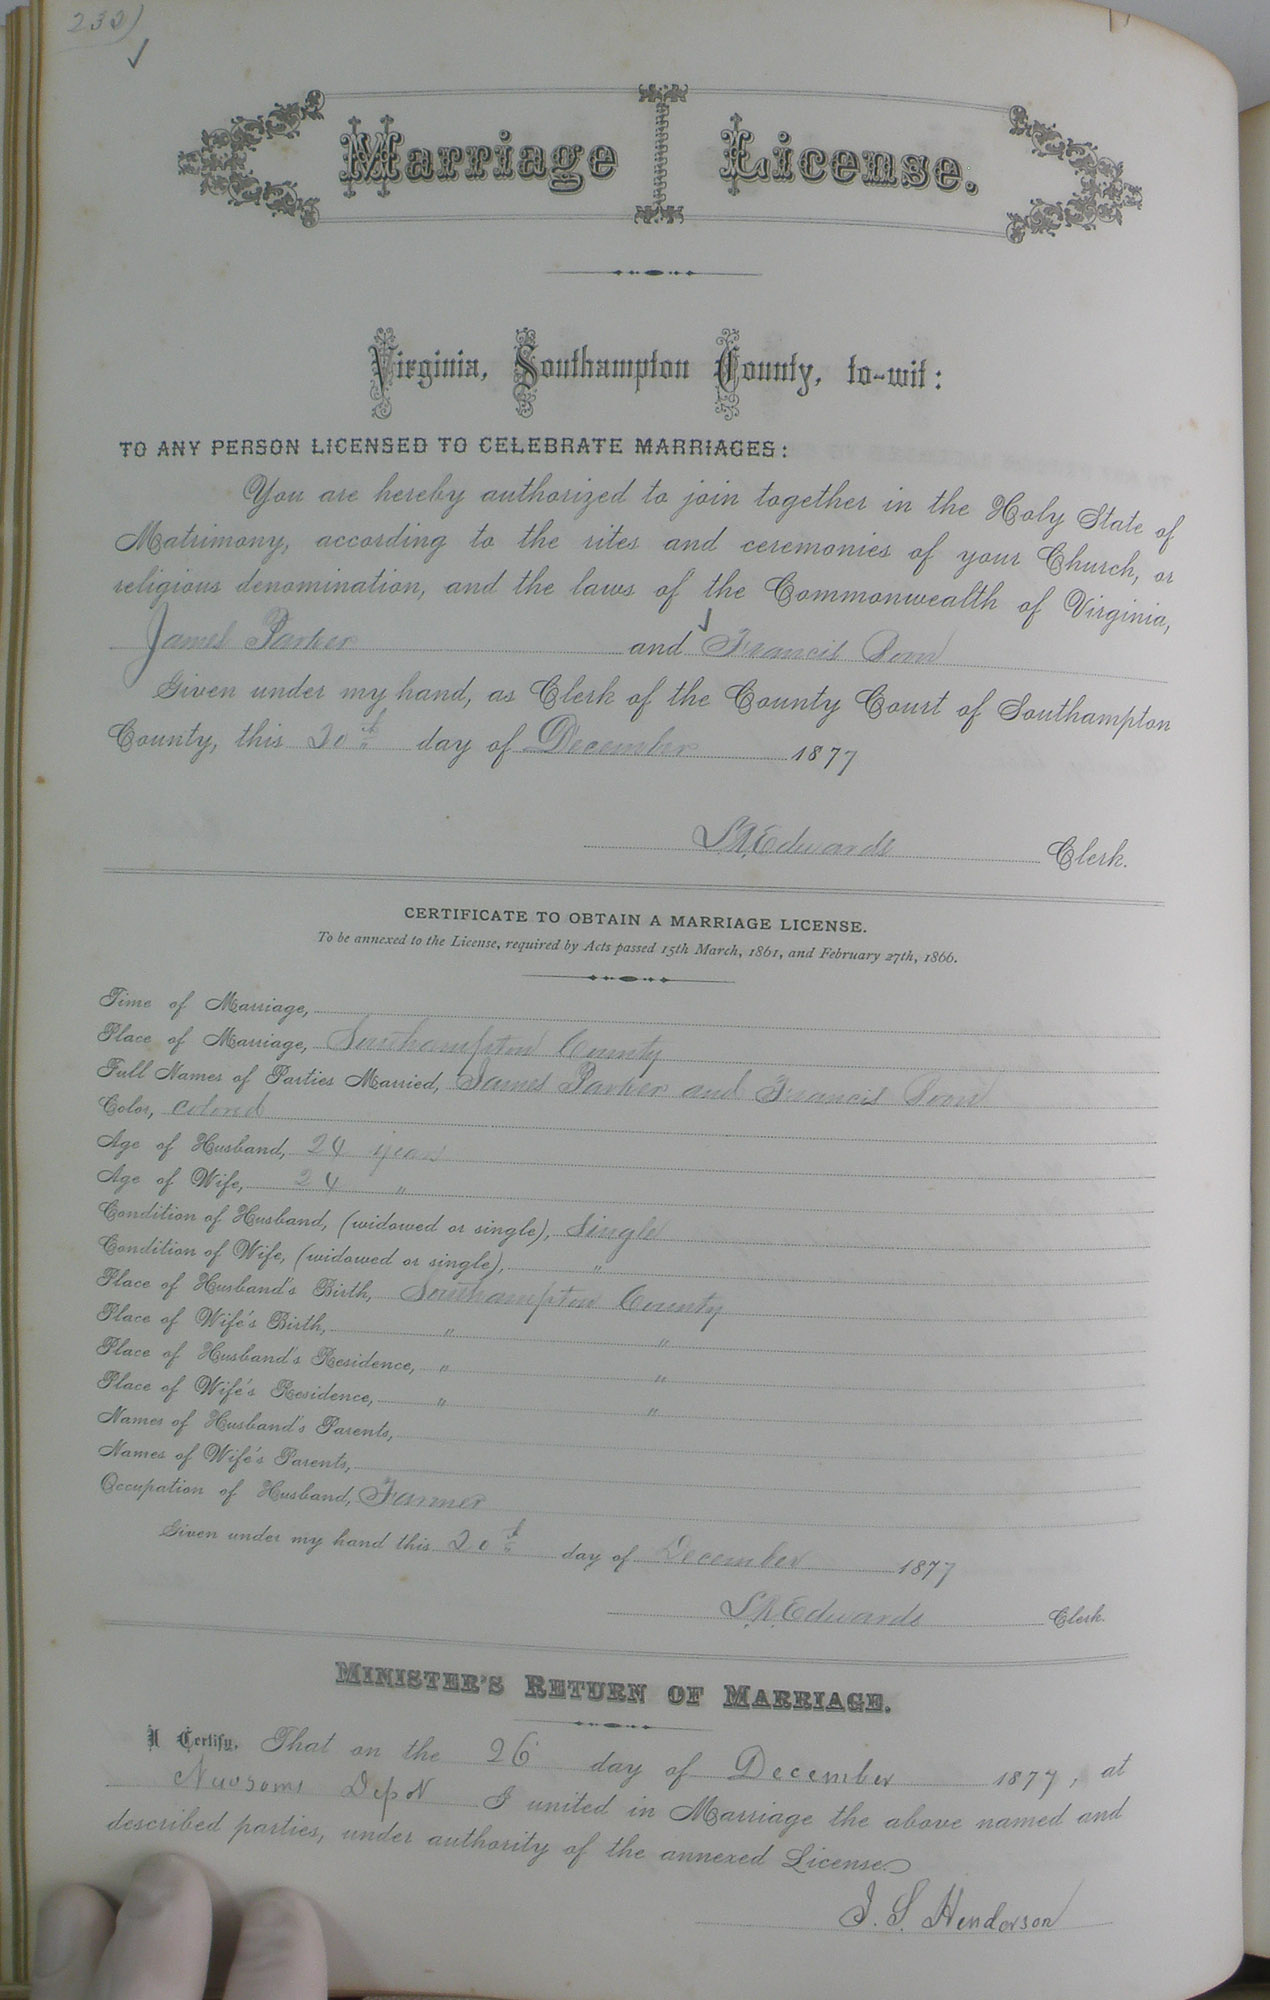 Marriage License.
Virginia, Southampton County, to-wit:
TO ANY PERSON LICENSED TO CELEBRATE MARRIAGES:
You are hereby authorized to join together in the Holy State of
Matrimony, according to the rites and ceremonies of your Church, or
religious denomination, and the laws of the Commonwealth of Virginia,
James Parker and Francis
Given under my hand, as Clerk of the County Court of Southampton
County, this 20th day of December 1877
Edwards Clerk.
CERTIFICATE TO OBTAIN A MARRIAGE LICENSE.
To be annexed to the License, required by Acts passed 15th March, 1861, and February 27th, 1866.
Time of Marriage,
Place of Marriage, Southampton County
Full Names of Parties Married, James Parker and Francis
Color, colored
Age of Husband, 24 years
Age of Wife, 24 "
Condition of Husband, (widowed or single), Single
Condition of Wife, (widowed or single), "
Place of Husband's Birth, Southampton County
Place of Wife's Birth, " "
Place of Husband's Residence, " "
Place of Wife's Residence, " "
Names of Husband's Parents,
Names of Wife's Parents,
Occupation of Husband, Farmer
Given under my hand this 20th day of December 1877
Edwards Clerk.
MINISTER'S RETURN OF MARRIAGE.
I Certify, That on the 26 day of December 1877, at
Newsoms I united in Marriage the above named and
described parties, under authority of the annexed License.
J. S. Henderson